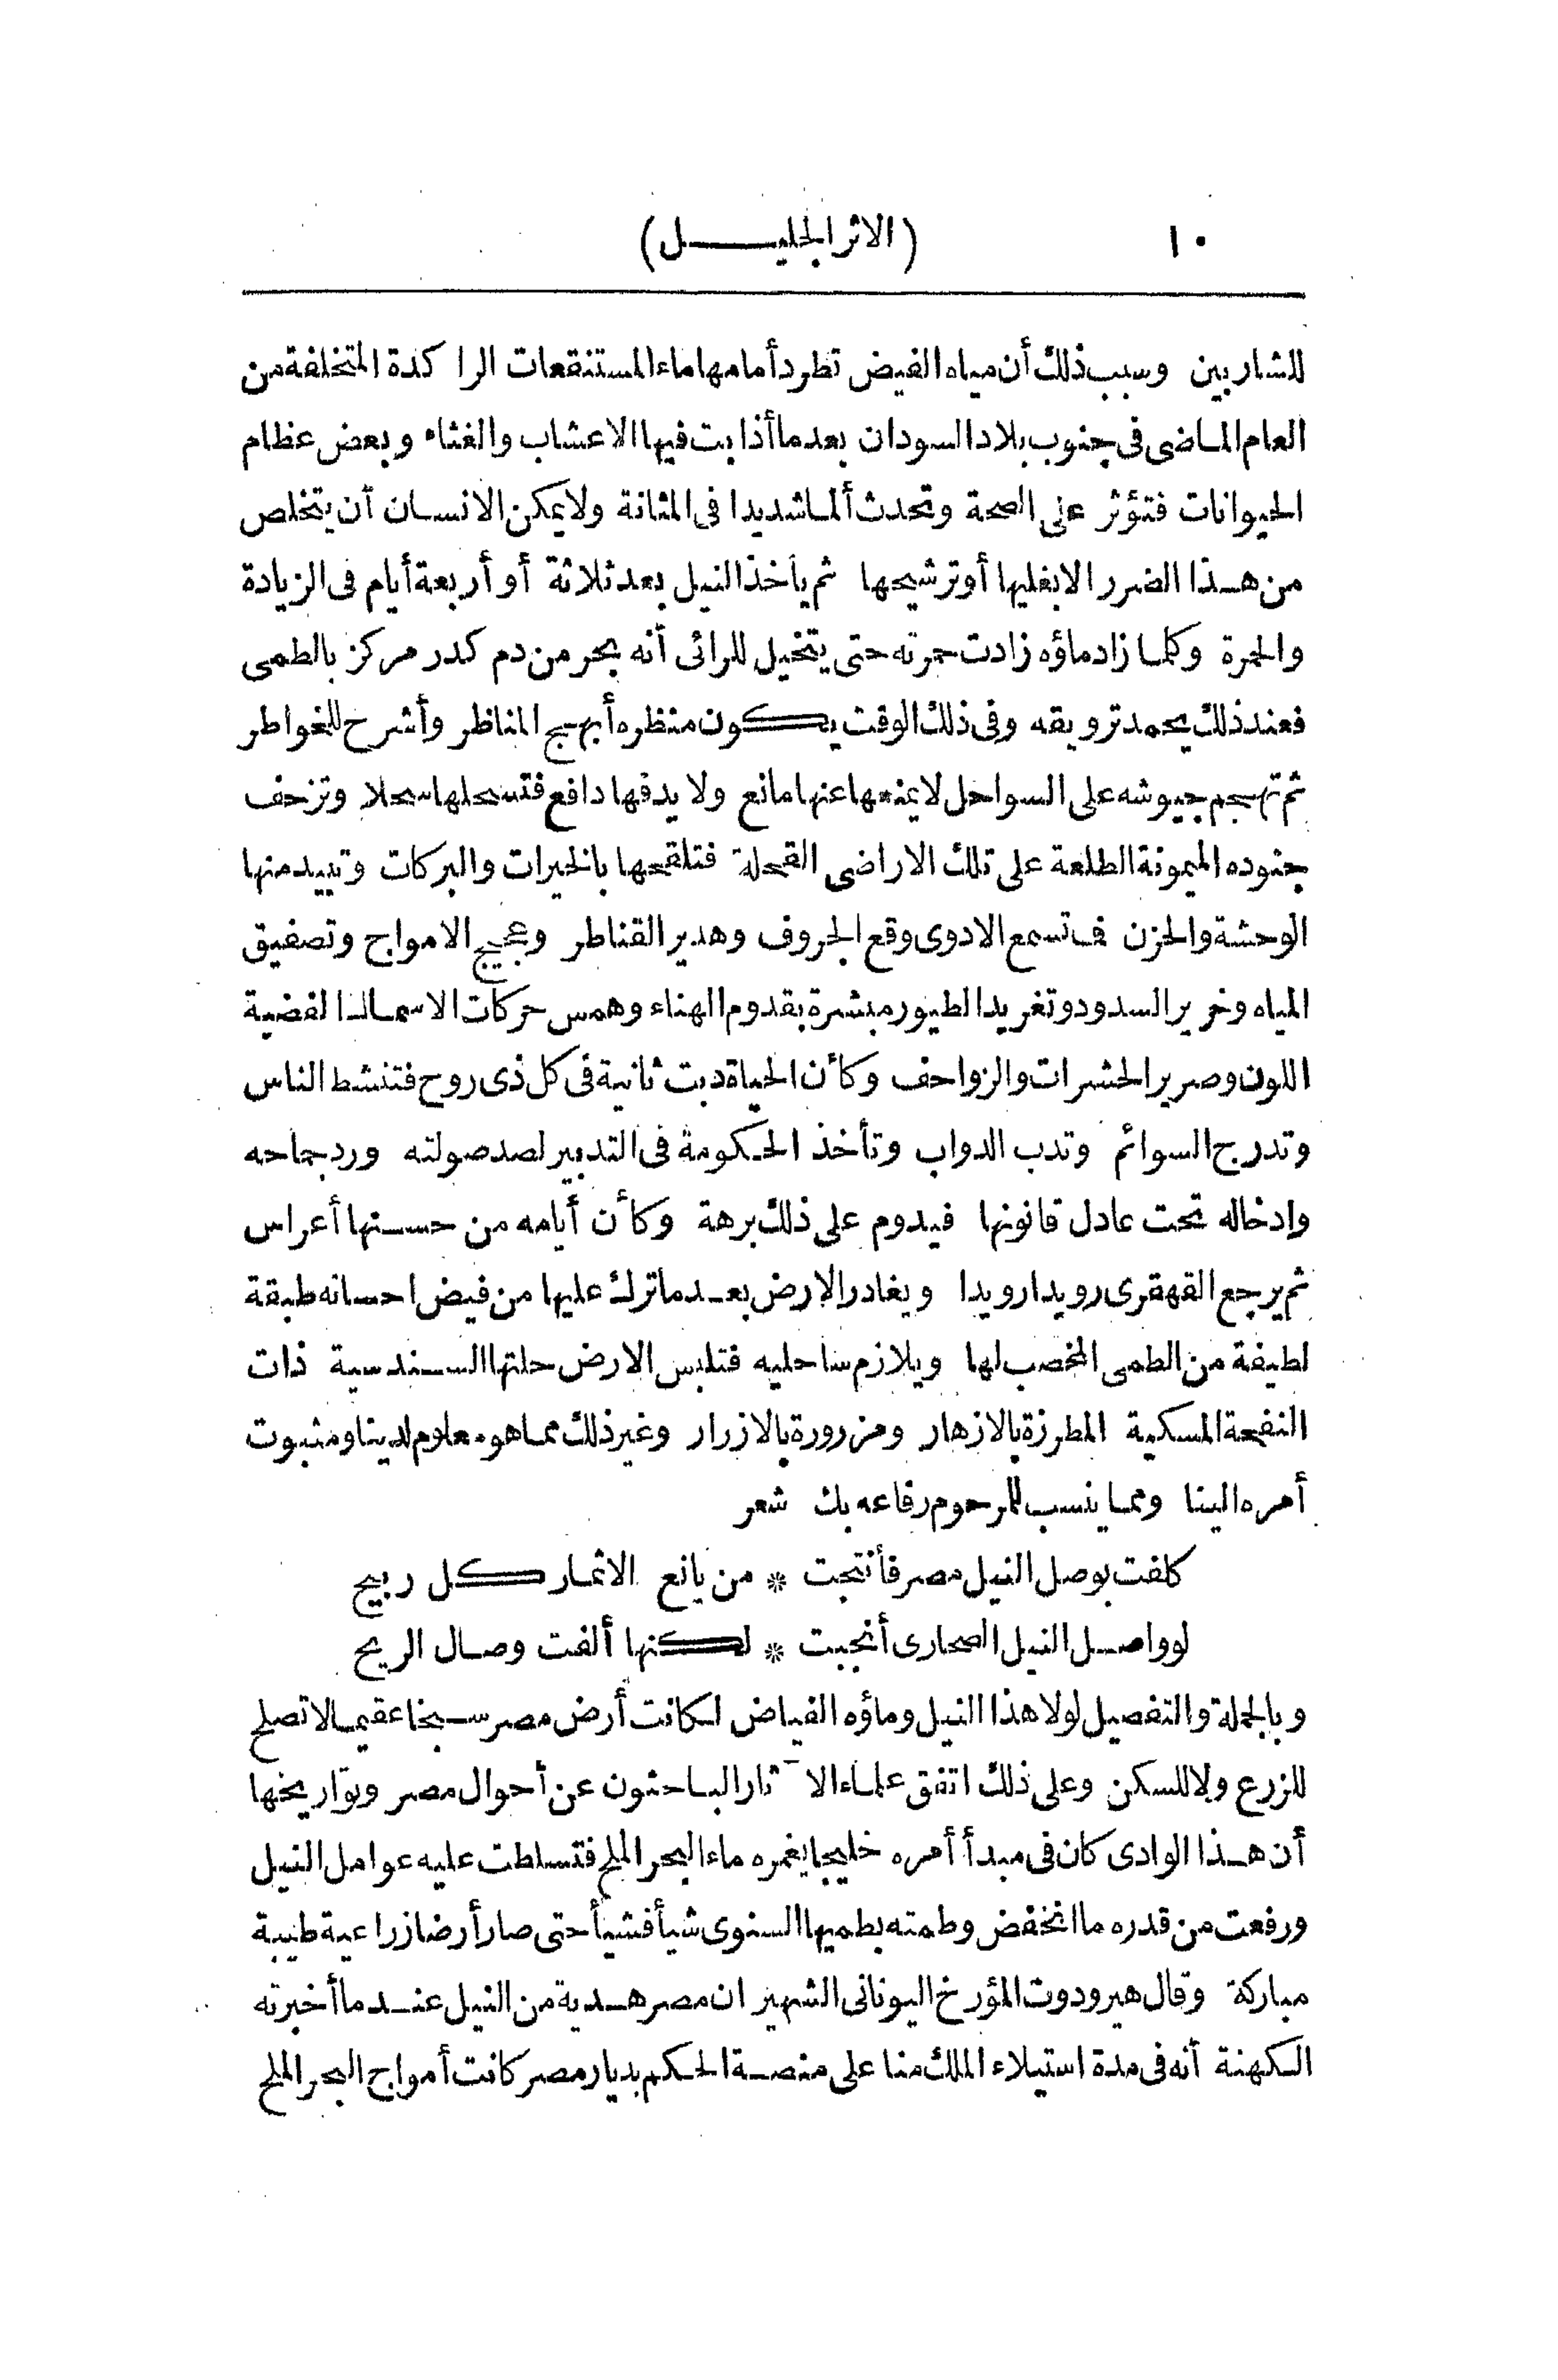 ١٠ (الاثر الجليل)
للشاربين وسبب ذلك أن مياه الفيض تطرد أمامها ماء المستنقعات الراكدة المتخلفة من
العام الماضى فى جنوب بلاد السودان بعد ما أذابت فيها الاعشاب والغثاء وبعض عظام
الحيوانات فتؤثر على الصحة وتحدث ألما شديدا فى المثانة ولا يمكن الانسان أن يتخلص
من هذا الضرر الا بغليها أو ترشيحها ثم يأخذ النيل بعد ثلاثة أو أربعة أيام فى الزيادة
والحمرة وكلما زاد ماؤه زادت حمرته حتى يتخيل للرائى أنه بحر من دم كدر مركز بالطمى
فعند ذلك يحمد ترويقه وفى ذلك الوقت يكون منظره أبهج المناظر وأشرح للخواطر
ثم تهجم جيوشه على السواحل لا يمنعها عنها مانع ولا يدفها دافع فتسحلها سحلا وتزحف
جنوده الميمونة الطلعة على تلك الاراضى القحلة فتلقحها بالخيرات والبركات وتبيد منها
الوحشة والحزن فما تسمع الا دوى وقع الجروف وهدير القناطر وعجيج الامواج وتصفيق
المياه وخرير السدود وتغريد الطيور مبشرة بقدوم الهناء وهمس حركات الاسماك الفضية
اللون وصرير الحشرات والزواحف وكأن الحياة دبت ثانية فى كل ذى روح فتنشط الناس
وتدرج السوائم وتدب الدواب وتأخذ الحكومة فى التدبير لصد صولته ورد جماحه
وادخاله تحت عادل قانونها فيدوم على ذلك برهة وكأن أيامه من حسنها أعراس
ثم يرجع القهقرى رويدا رويدا ويغادر الارض بعد ما ترك عليها من فيض احسانه طبقة
لطيفة من الطمى المخصب لها ويلازم ساحليه فتلبس الارض حلتها السندسية ذات
النفحة المسكية المطرزة بالازهار ومزرورة بالازرار وغير ذلك مما هو معلوم لدينا ومثبوت
أمره الينا ومما ينسب للمرحوم رفاعه بك شعر
كلفت بوصل النيل مصر فأنتجت * من يانع الاثمار كل ربيح
لو واصل النيل الصحارى أنجبت * لكنها ألفت وصال الريح
وبالجملة والتفصيل لولا هذا النيل وماؤه الفياض لكانت أرض مصر سبخا عقيما لا تصلح
للزرع ولا للسكن وعلى ذلك اتفق علماء الآثار الباحثون عن أحوال مصر وتواريخها
أن هذا الوادى كان فى مبدأ أمره خليجا يغمره ماء البحر الملح فتسلطت عليه عوامل النيل
ورفعت من قدره ما انخفض وطمته بطميها السنوى شيأ فشيأ حتى صار أرضا زراعية طيبة
مباركة وقال هيرودوت المؤرخ اليونانى الشهير ان مصر هدية من النيل عند ما أخبرته
الكهنة أنه فى مدة استيلاء الملك منا على منصة الحكم بديار مصر كانت أمواج البحر الملح